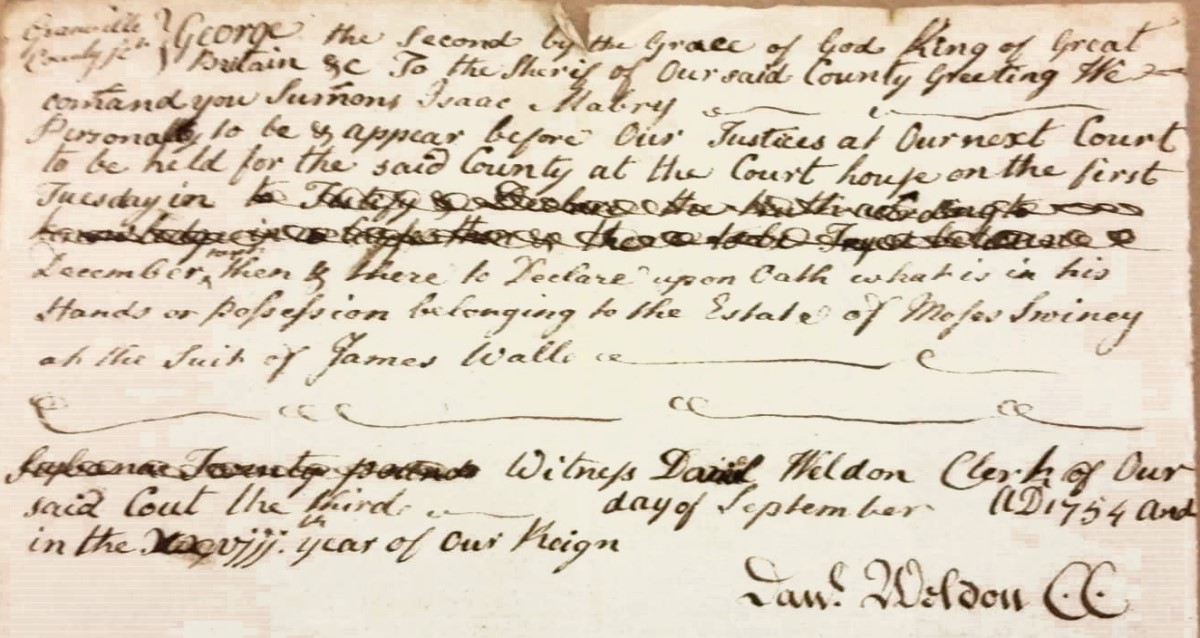 Granville County Sct } George the Second by the Grace of God King of Great
Britain &c To the Sherif of Our said County Greeting We
comand you Sumons Isaac Mabry
Personally to be & appear before Our Justices at Our next Court
to be held for the said County at the Court house on the first
Tuesday in to Testify & Declare the truth according to
December next then & there to Declare upon Oath what is in his
Hands or possession belonging to the Estate of Moses Swiney
at the Suit of James Wall
Subpenae Twenty pounds Witness Daniel Weldon Clerk of Our
said Cout the third day of September AD 1754 and
in the xxviij.th year of Our Reign
Danl. Weldon CC